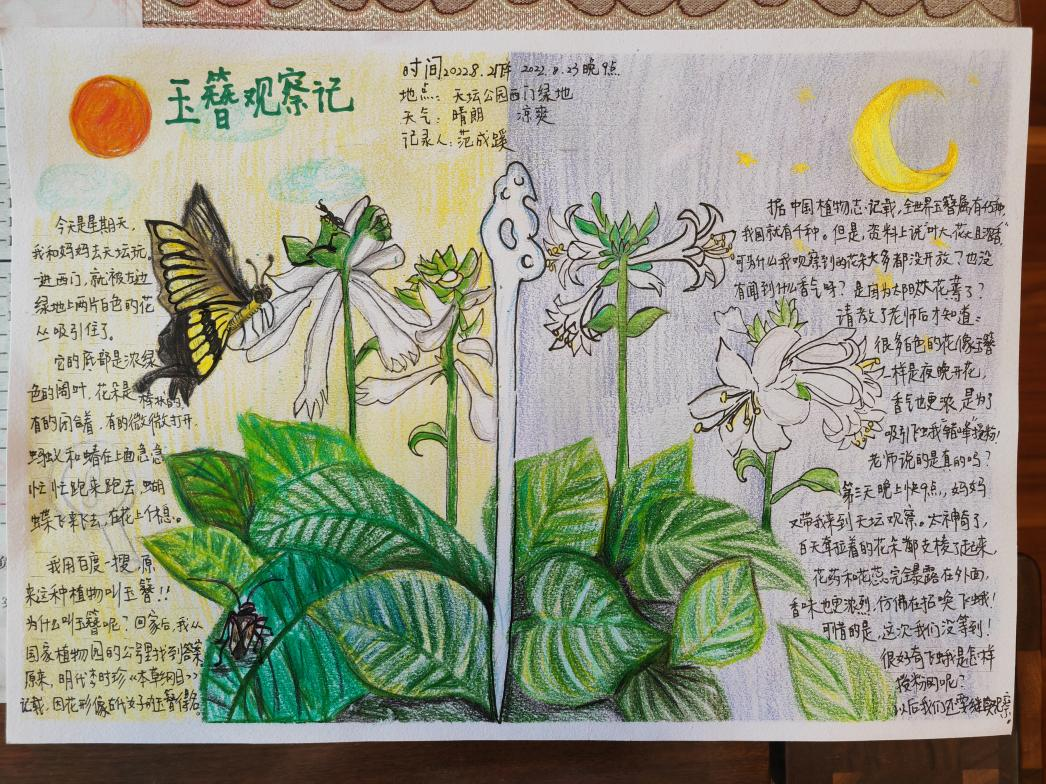 玉簪观察记
时间2022.8.21下午 2022.8.23晚9点
地点：天坛公园西门绿地
天气：晴朗 凉爽
记录人：范成蹊
今天是星期天，
我和妈妈去天坛玩。
进西门，就被左边
绿地上两片白色的花
丛吸引住了。
它的底部是浓绿
色的阔叶，花朵是棒状的，
有的闭合着，有的微微打开.
蚂蚁和蝽在上面急急
忙忙跑来跑去，蝴
蝶飞来飞去，在花上休息。
我用百度一搜，原
来这种植物叫玉簪!!
为什么叫玉簪呢？回家后，我从
国家植物园的公号里找到答案
原来，明代李时珍《本草纲目》
记载，因花形像古代女子的玉簪得名。
据中国植物志记载，全世界玉簪属有45种，
我国就有4种。但是，资料上说“叶大、花大且浓香”
可为什么我观察到的花朵大多都没开放？也没
有闻到什么香气呀？是因为太阳太大花蔫了？
请教了老师后才知道：
很多白色的花像玉簪
一样是夜晚开花，
香气也更浓，是为了
吸引飞蛾我错峰授粉!
老师说的是真的吗？
第三天晚上快9点，妈妈
又带我来到天坛观察。太神奇了，
白天耷拉着的花朵都支棱了起来，
花药和花蕊完全暴露在外面，
香味也更浓烈，仿佛在招唤飞蛾!
可惜的是，这次我们没等到!
很好奇飞蛾是怎样
授粉的呢？
以后我们还要继续观察!